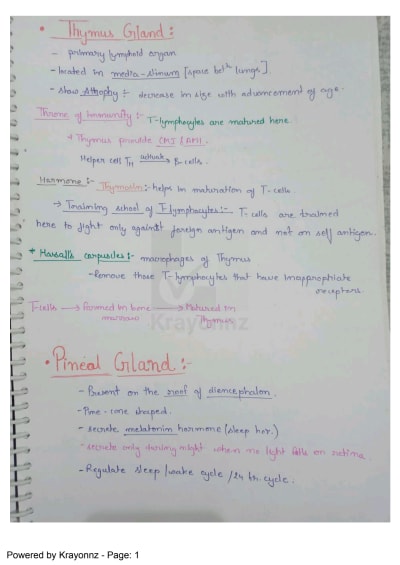 • Thymus Gland :-
- primary lymphoid organ
- located in media-stinum [space betn lungs].
- show Athophy :- decrease in size with advancement of age.
Throne of immunity :- T-lymphocytes are matured here.
* Thymus promote CMI / AMI.
Helper cell TH activate → B-cells.
Harmone :- Thymosin :- helps in maturation of T-cells.
→ Training school of T-lymphocytes :- T-cells are trained
here to fight only against foreign antigen and not on self antigen.
* Hassall's corpuscles :- macrophages of Thymus
- Remove those T-lymphocytes that have inappropriate
receptors.
T-cells → Formed in bone → Matured in
marrow Thymus
Krayonnz
• Pineal Gland :-
- Present on the roof of diencephalon.
- Pine-cone shaped.
- secrete melatonin hormone (sleep hor.)
- secrete only during night when no light falls on retina.
- Regulate sleep/wake cycle /24 hr. cycle.
Powered by Krayonnz - Page: 1